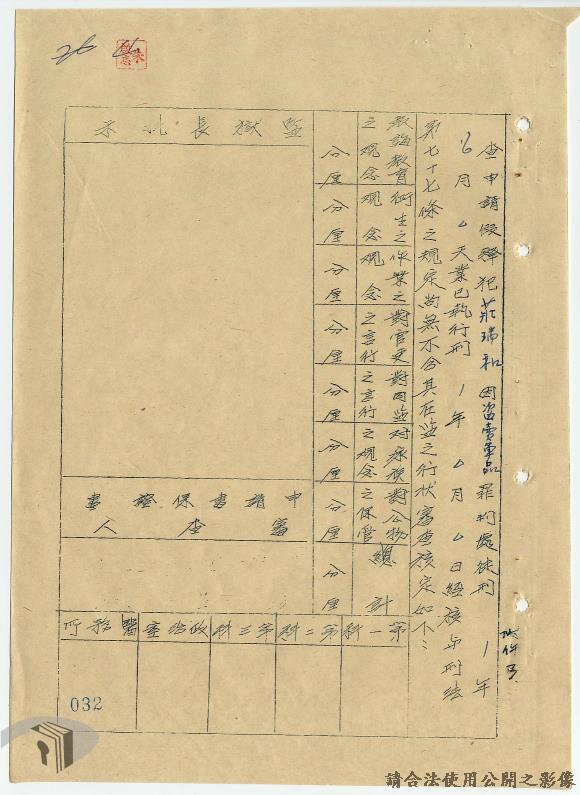 查申請假釋犯莊瑞和因盜賣軍品罪刑處徒刑1年
6月0天業已執行刑1年0月0日經核與刑法
第七十七條之規定尚無不合其在監之行狀審查核定如下：
教誨教育之觀念
衛生之觀念
作業之觀念
對官吏之言行
對同監之言行
之觀念
對公物之保管
總計
分屋
分屋
分屋
分屋
分屋
分屋
分屋
分屋
監獄長批示
申請書保證書
審查人
第一科
第二科
第三科
政治室
醫務所
032
請合法使用公開之影像